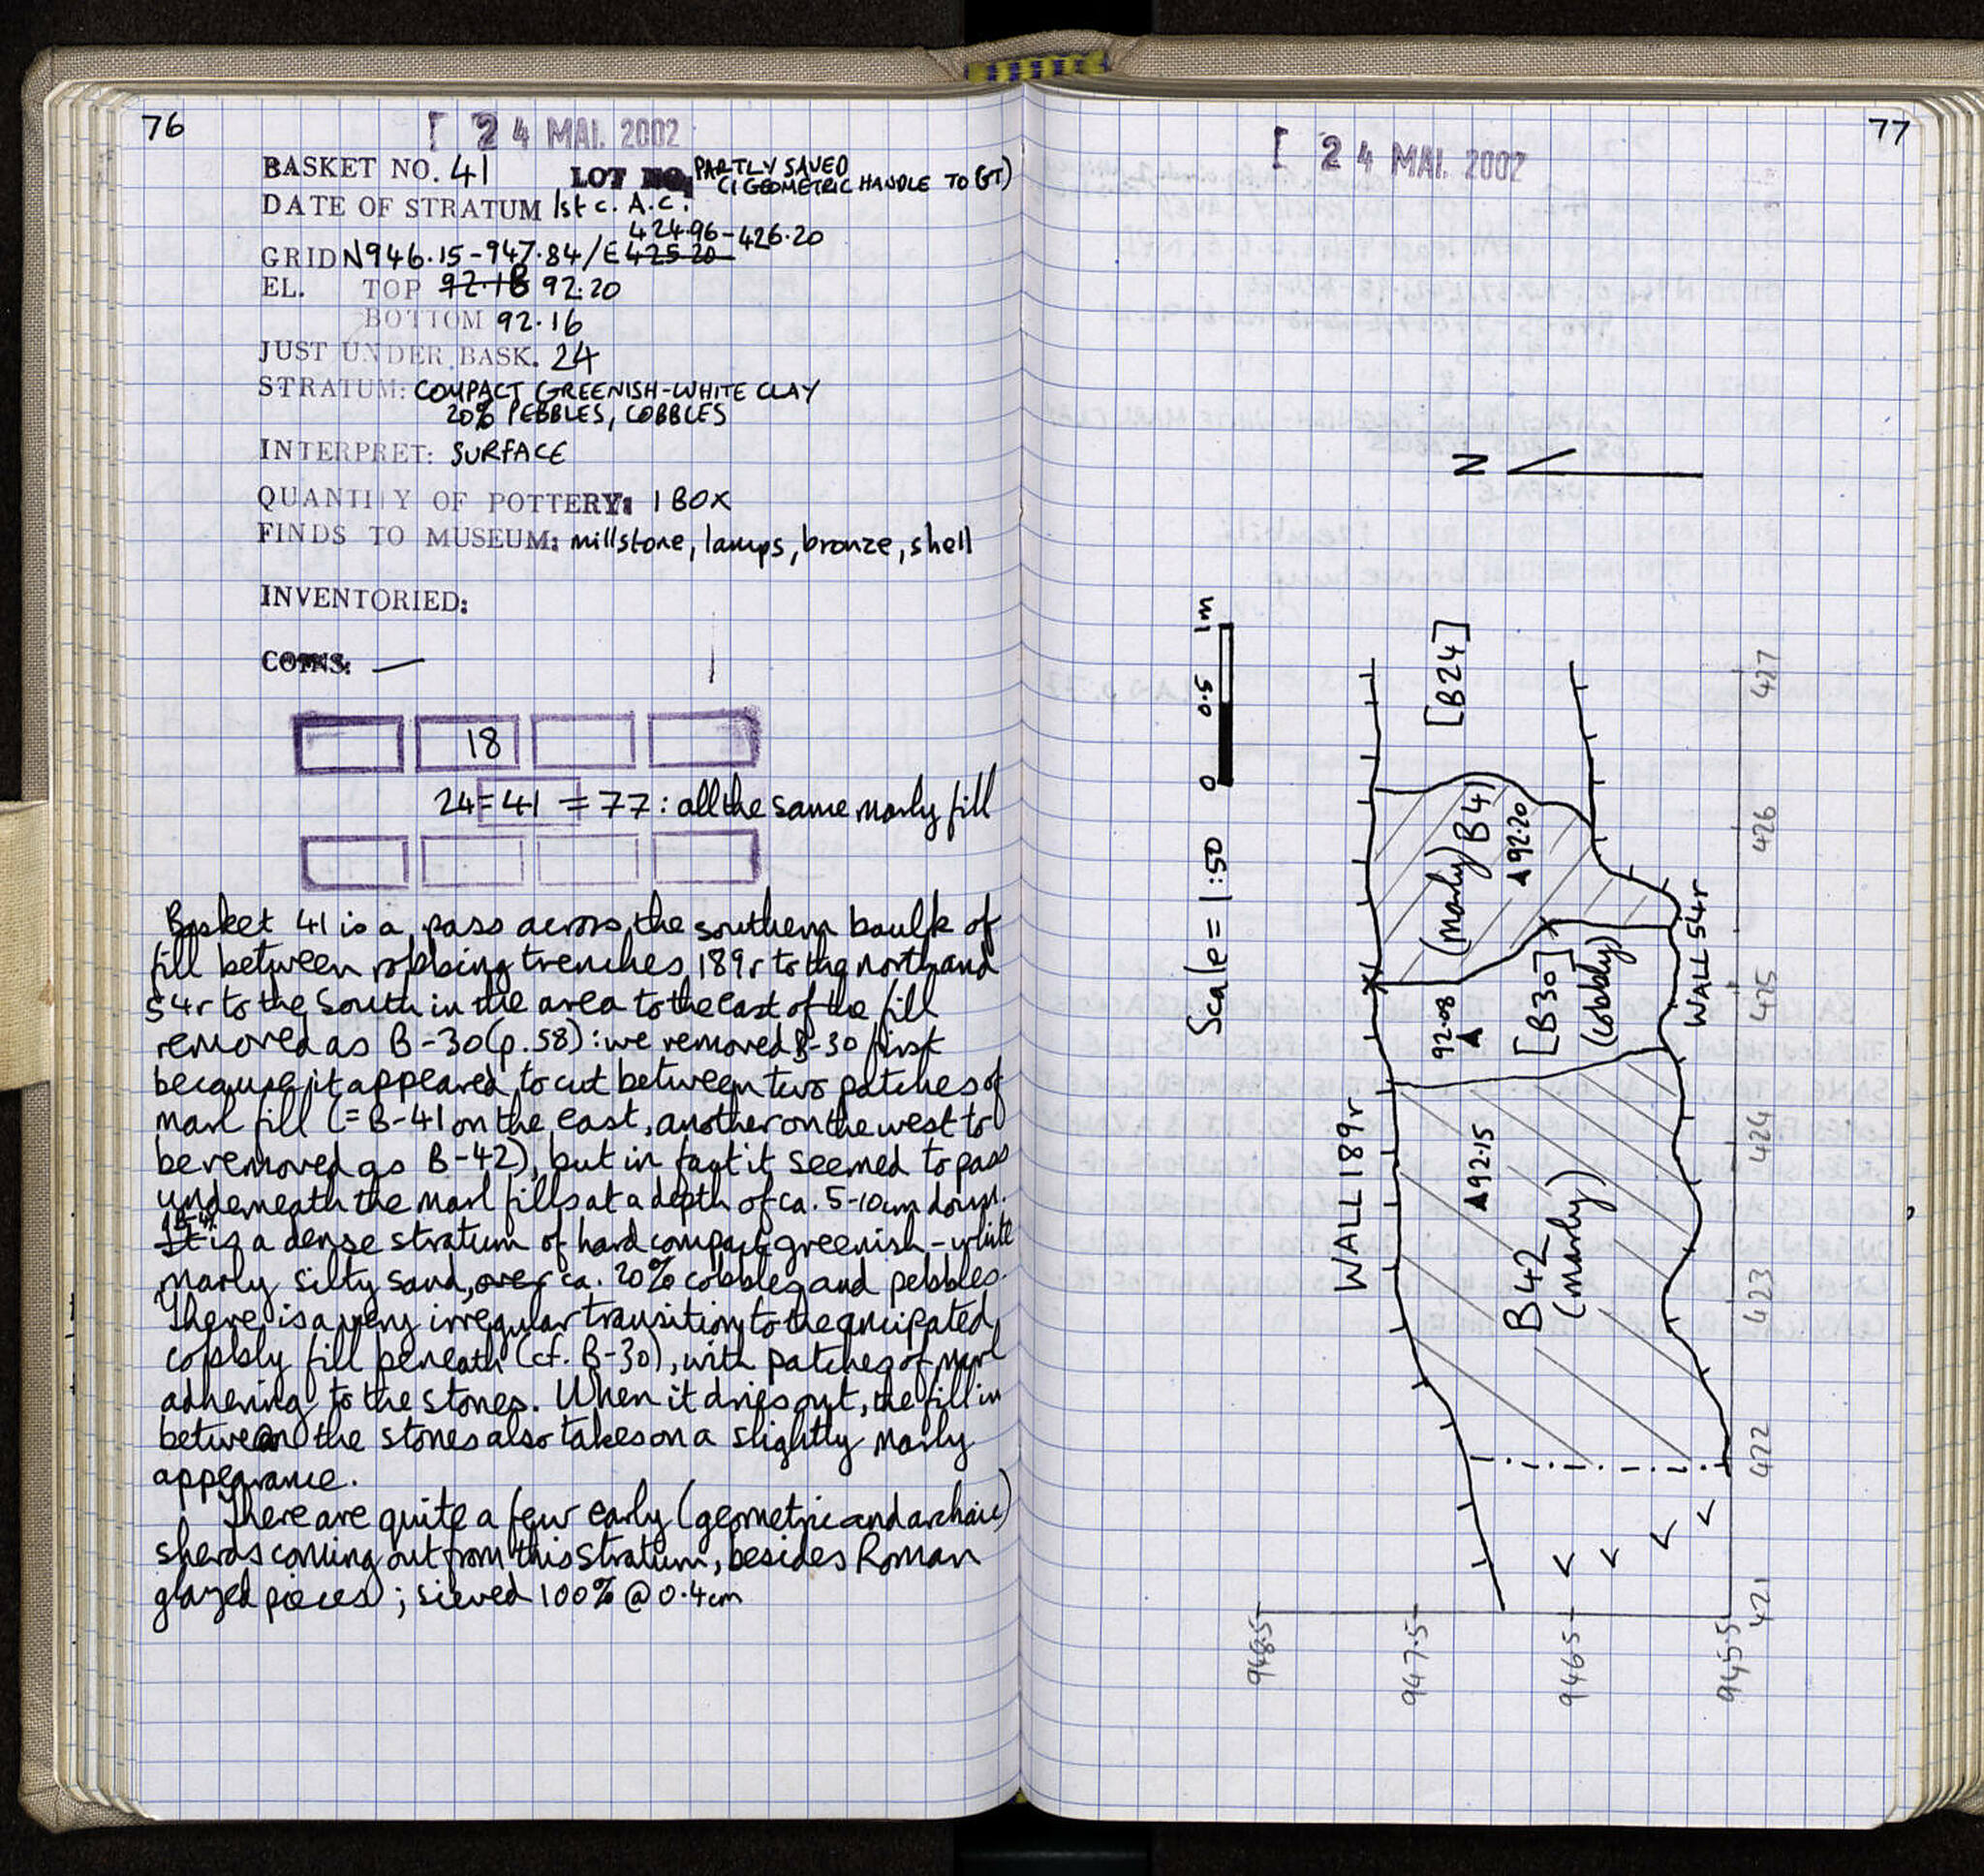 76
[ 24 MAI. 2002
BASKET NO. 41 LOT NO. PARTLY SAVED
(1 GEOMETRIC HANDLE TO GT)
DATE OF STRATUM 1st c. A.C.
424.96-426.20
GRID N946.15-947.84/E 425.20
EL. TOP 92.18 92.20
BOTTOM 92.16
JUST UNDER BASK. 24
STRATUM: COMPACT GREENISH-WHITE CLAY
20% PEBBLES, COBBLES
INTERPRET: SURFACE
QUANTITY OF POTTERY: 1 BOX
FINDS TO MUSEUM: millstone, lamps, bronze, shell
INVENTORIED:
COINS: —
18
24=41=77: all the same marly fill
Basket 41 is a pass across the southern baulk of
fill between robbing trenches 189r to the north and
54r to the South in the area to the east of the fill
removed as B-30 (p.58): we removed B-30 first
because it appeared to cut between two patches of
marl fill (=B-41 on the east, another on the west to
be removed as B-42), but in fact it seemed to pass
underneath the marl fills at a depth of ca. 5-10cm down.
B-41
It is a dense stratum of hard compact greenish-white
marly silty sand, over ca. 20% cobbles and pebbles.
There is a very irregular transition to the anticipated
cobbly fill beneath (cf. B-30), with patches of marl
adhering to the stones. When it dries out, the fill in
between the stones also takes on a slightly marly
appearance.
There are quite a few early (geometric and archaic)
sherds coming out from this stratum, besides Roman
glazed pieces; sieved 100% @ 0.4cm
77
[ 24 MAI. 2002
N
Scale = 1:50
0 0.5 1m
[B24]
(marly) B41
92.20
92.08
[B30]
(cobbly)
WALL 54r
WALL 189r
92.15
B42
(marly)
427
426
425
424
423
422
421
948.5
947.5
946.5
945.5